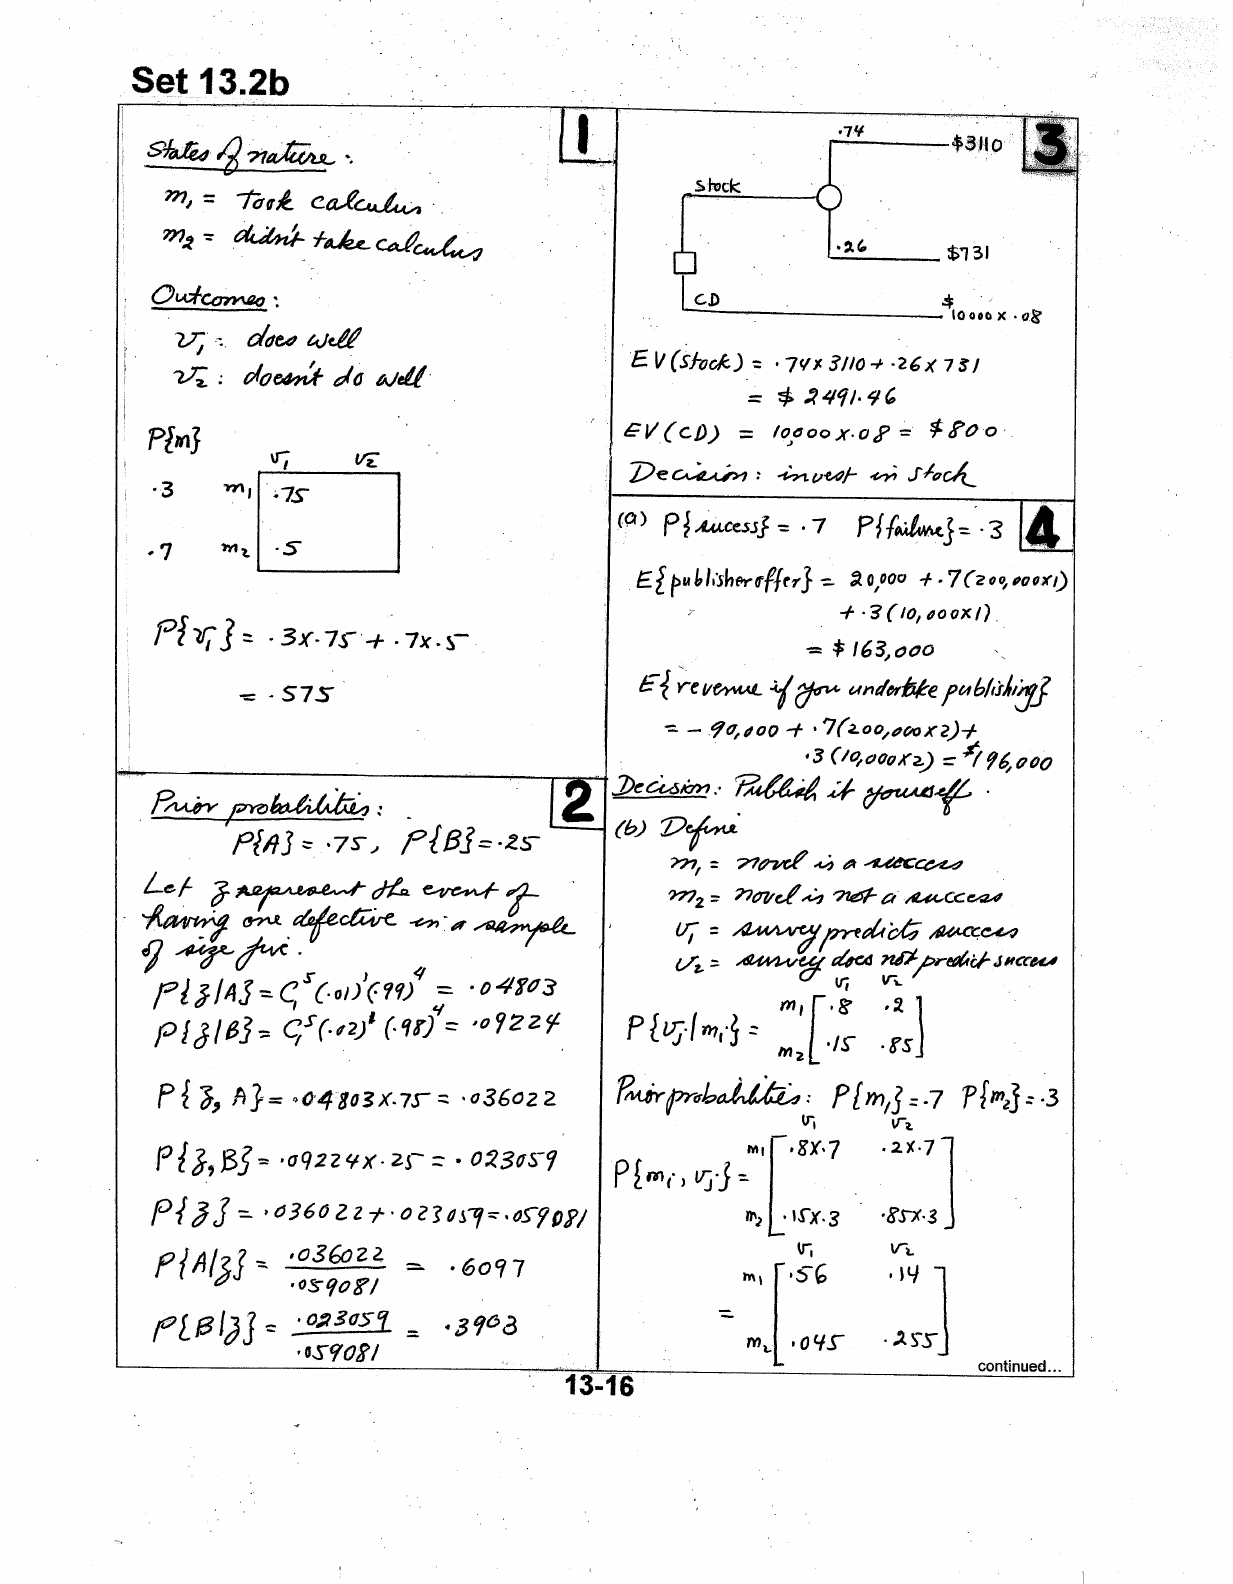 Set 13.2b
1
States of nature :
m₁ = Took calculus
m₂ = didn't take calculus
Outcomes :
v₁ : does well
v₂ : doesn't do well
P{m}
v₁ v₂
.3 m₁ .75
.7 m₂ .5
P{v₁} = .3x.75 + .7x.5
= .575
2
Prior probabilities :
P{A} = .75, P{B} = .25
Let z represent the event of
having one defective in a sample
of size five.
P{z|A} = C₁⁵ (.01)¹ (.99)⁴ = .04803
P{z|B} = C₁⁵ (.02)¹ (.98)⁴ = .09224
P{z, A} = .04803x.75 = .036022
P{z, B} = .09224x.25 = .023059
P{z} = .036022 + .023059 = .059081
P{A|z} = .036022 / .059081 = .6097
P{B|z} = .023059 / .059081 = .3903
3
.74 $3110
stock
.26 $731
CD $10000 x .08
EV(stock) = .74x3110 + .26x731
= $2491.46
EV(CD) = 10,000x.08 = $800
Decision : invest in stock
4
(a) P{sucess} = .7 P{failure} = .3
E{publisher offer} = 20,000 + .7(200,000x1)
+ .3(10,000x1)
= $163,000
E{revenue if you undertake publishing}
= -90,000 + .7(200,000x2) +
.3(10,000x2) = $196,000
Decision : Publish it yourself .
(b) Define
m₁ = novel is a success
m₂ = novel is not a success
v₁ = survey predicts success
v₂ = survey does not predict success
v₁ v₂
m₁ .8 .2
P{vⱼ|mᵢ} =
m₂ .15 .85
Prior probabilities : P{m₁} = .7 P{m₂} = .3
v₁ v₂
m₁ .8x.7 .2x.7
P{mᵢ, vⱼ} =
m₂ .15x.3 .85x.3
v₁ v₂
m₁ .56 .14
=
m₂ .045 .255
continued...
13-16